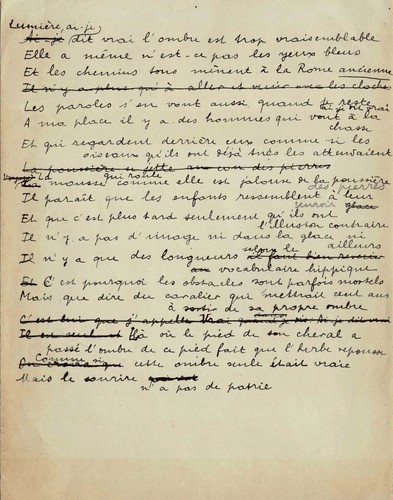 Lumière, ai-je
Ai-je dit vrai l'ombre est trop vraisemblable
Elle a même n'est-ce pas les yeux bleus
Et les chemins tous mènent à la Rome ancienne
Il n'y a plus qu'à aller et les cloches
Les paroles s'en vont aussi quand je reste
si j'ai dit vrai
A ma place il y a des hommes qui vont à la
chasse
Et qui regardent derrière eux comme si les
oiseaux qu'ils ont déjà tués les attendaient
La poussière des pierres
La mousse comme elle est jalouse de la poussière
qui rôtit
des pierres
Il paraît que les enfants ressemblent à leur
miroir glace
Et que c'est plus tard seulement qu'ils ont
l'illusion contraire
Il n'y a pas d'image ni dans la glace ni
ailleurs
Il n'y a que des longueurs selon le il faut bien
au vocabulaire hippique
Et C'est pourquoi les obstacles sont parfois mortels
Mais que dire du cavalier qui mettrait cent ans
à sortir de sa propre ombre
C'est lui que j'appelle Vrai Ai-je dit vrai
Il est seul et Là où le pied de son cheval a
passé l'ombre de ce pied fait que l'herbe repousse
Comme si
On croira que cette ombre seule était vraie
Mais le sourire
n'a pas de patrie